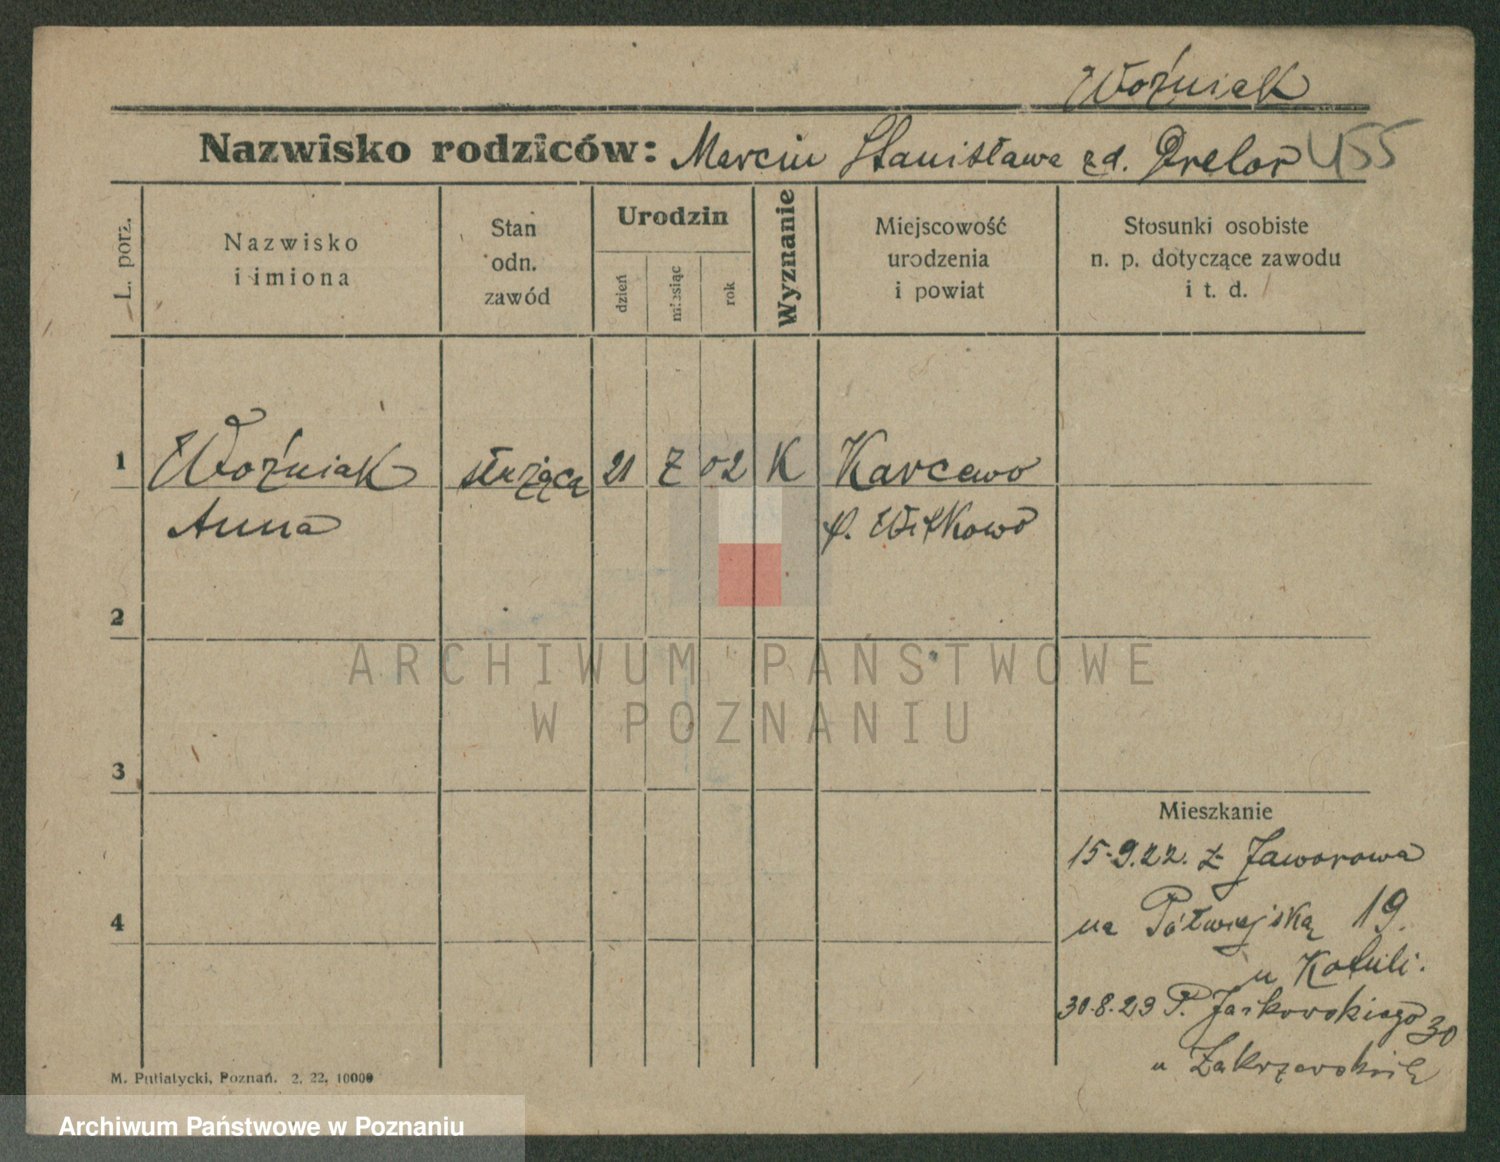 Woźniak
Nazwisko rodziców: Marcin Stanisława zd. Prelor 455
L. porz.
Nazwisko
i imiona
Stan
odn.
zawód
Urodzin
dzień
miesiąc
rok
Wyznanie
Miejscowość
urodzenia
i powiat
Stosunki osobiste
n. p. dotyczące zawodu
i t. d.
1 Woźniak służąca 21 7 02 K Karcewo
Anna p. Witkowo
2
3
4
Mieszkanie
15-9.22. z Jaworowa
na Półwiejską 19.
u Kotuli.
30-8-23 P. Jackowskiego 30
u Zakrzewskich
M. Putiatycki, Poznań. 2. 22. 10000
ARCHIWUM PAŃSTWOWE
W POZNANIU
Archiwum Państwowe w Poznaniu